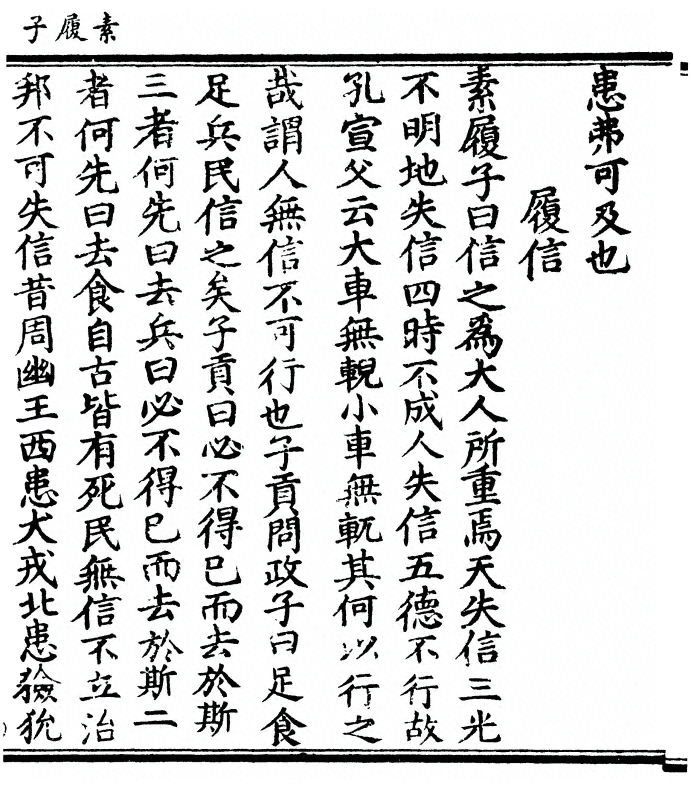 素履子
患弗可及也
履信
素履子曰信之爲大人所重焉天失信三光
不明地失信四時不成人失信五德不行故
孔宣父云大車無輗小車無軏其何以行之
哉謂人無信不可行也子貢問政子曰足食
足兵民信之矣子貢曰必不得已而去於斯
三者何先曰去兵曰必不得已而去於斯二
者何先曰去食自古皆有死民無信不立治
邦不可失信昔周幽王西患犬戎北患獫狁